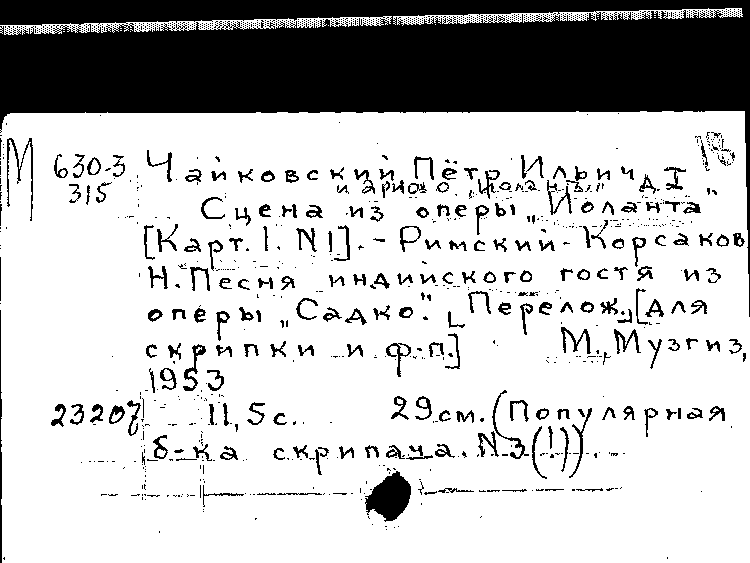 18
М 630-3 Чайковский Пётр Ильич
315 и ариозо „Иоланты" д I
Сцена из оперы „Иоланта"
[Карт. 1. N 1]. - Римский-Корсаков
Н. Песня индийского гостя из
оперы „Садко". Перелож. [для
скрипки и ф-п.] М., Музгиз,
1953
23207 11,5 с. 29 см. (Популярная
б-ка скрипача. N 3 (!)).